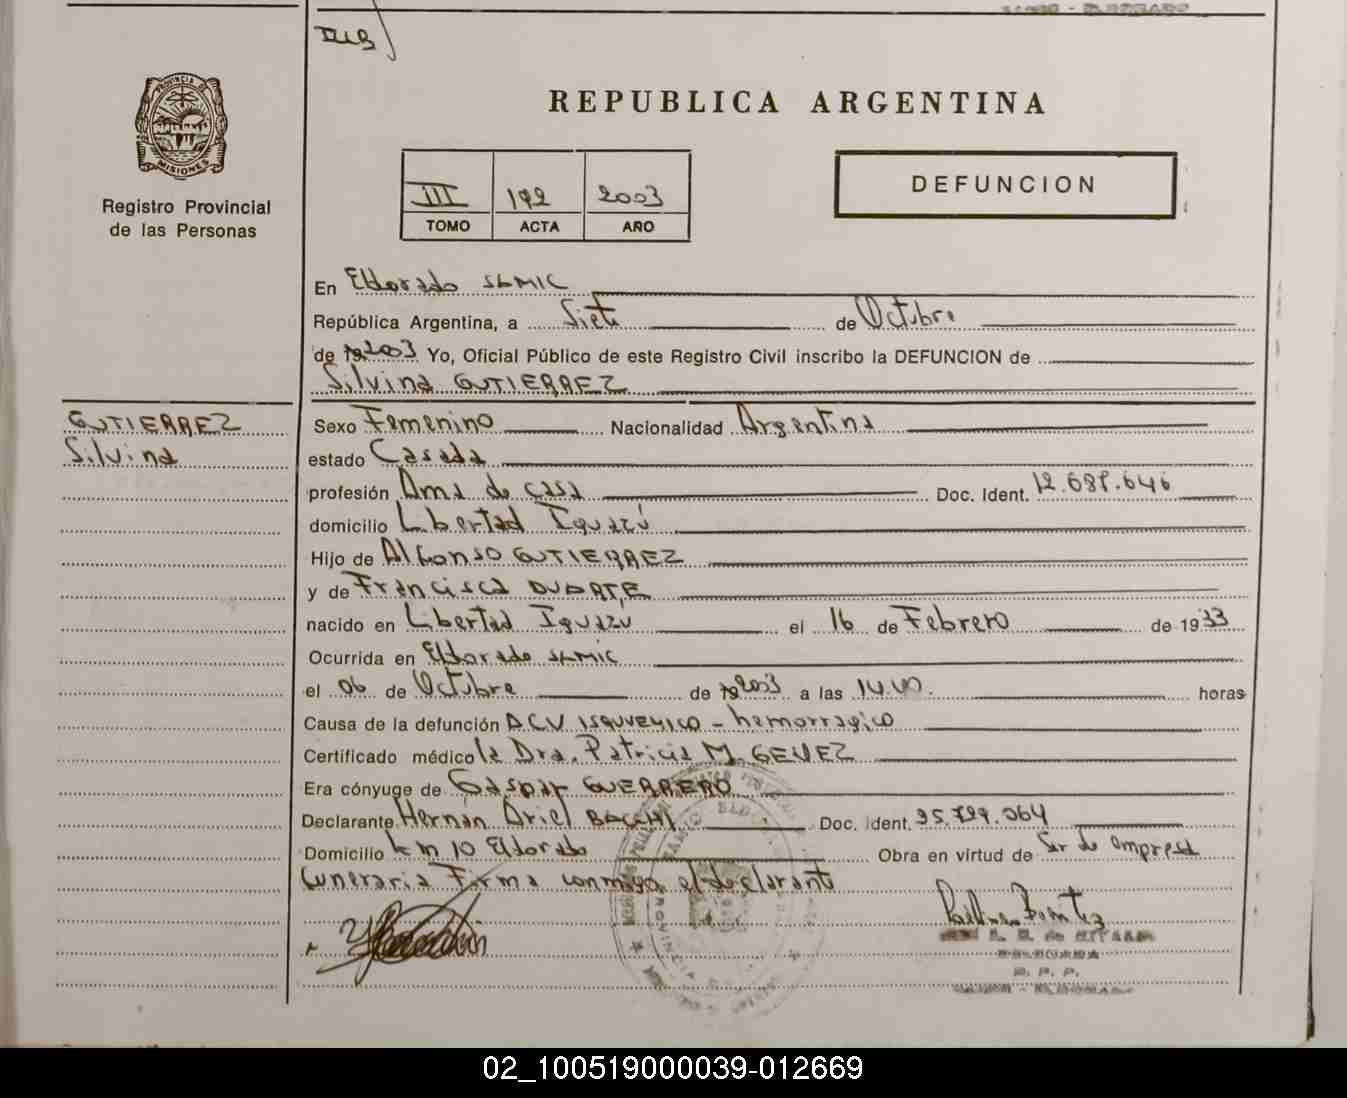 REPUBLICA ARGENTINA
PROVINCIA DE
MISIONES
Registro Provincial
de las Personas
III 192 2003
TOMO ACTA AÑO
DEFUNCION
En Eldorado SAMIC
República Argentina, a Siete de Octubre
de 2003 Yo, Oficial Público de este Registro Civil inscribo la DEFUNCION de
Silvina GUTIERREZ
GUTIERREZ
Silvina
Sexo Femenino Nacionalidad Argentina
estado Casada
profesión Ama de casa Doc. Ident.
domicilio Libertad Iguazú
Hijo de Alfonso GUTIERREZ
y de Francisca DUARTE
nacido en Libertad Iguazú el 16 de Febrero de 1933
Ocurrida en Eldorado SAMIC
el 06 de Octubre de 2003 a las horas
Causa de la defunción ACV isquvemico - hemorragico
Certificado médico la Dra. Patricia M.
Era cónyuge de Gaspar GUERRERO
Declarante Hernán Ariel BACCHI Doc. Ident.
Domicilio km 10 Eldorado Obra en virtud de Ser de empresa
funeraria Firma conmigo el declarante
02_100519000039-012669